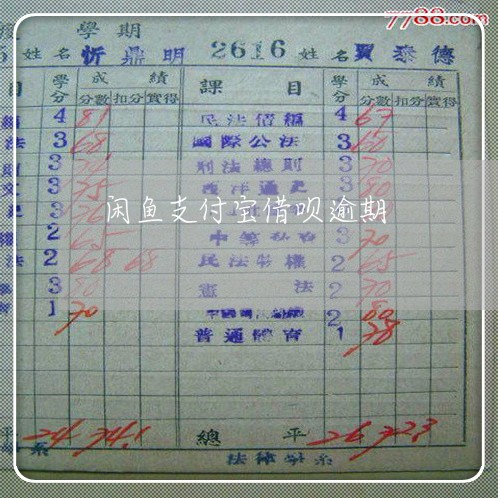 7788.com
學期
5 姓名 忻鼎明 2616 姓名 賈泰德
目 學分 成績 分數 扣分 實得 課目 學分 成績 分數 扣分 實得
4 81 民法債編 4 67
法 3 68 國際公法 3 60
3 刑法總則 3 70
3 75 西洋通史 3 80
閑鱼支付宝借呗逾期
2 65 3 70
法 2 68 68 民法物權 2 65
3 80 憲法 2 70
1 70 2 80
普通體育 1 78
平 24 74.1 總平 26 72.3
系 法律學系